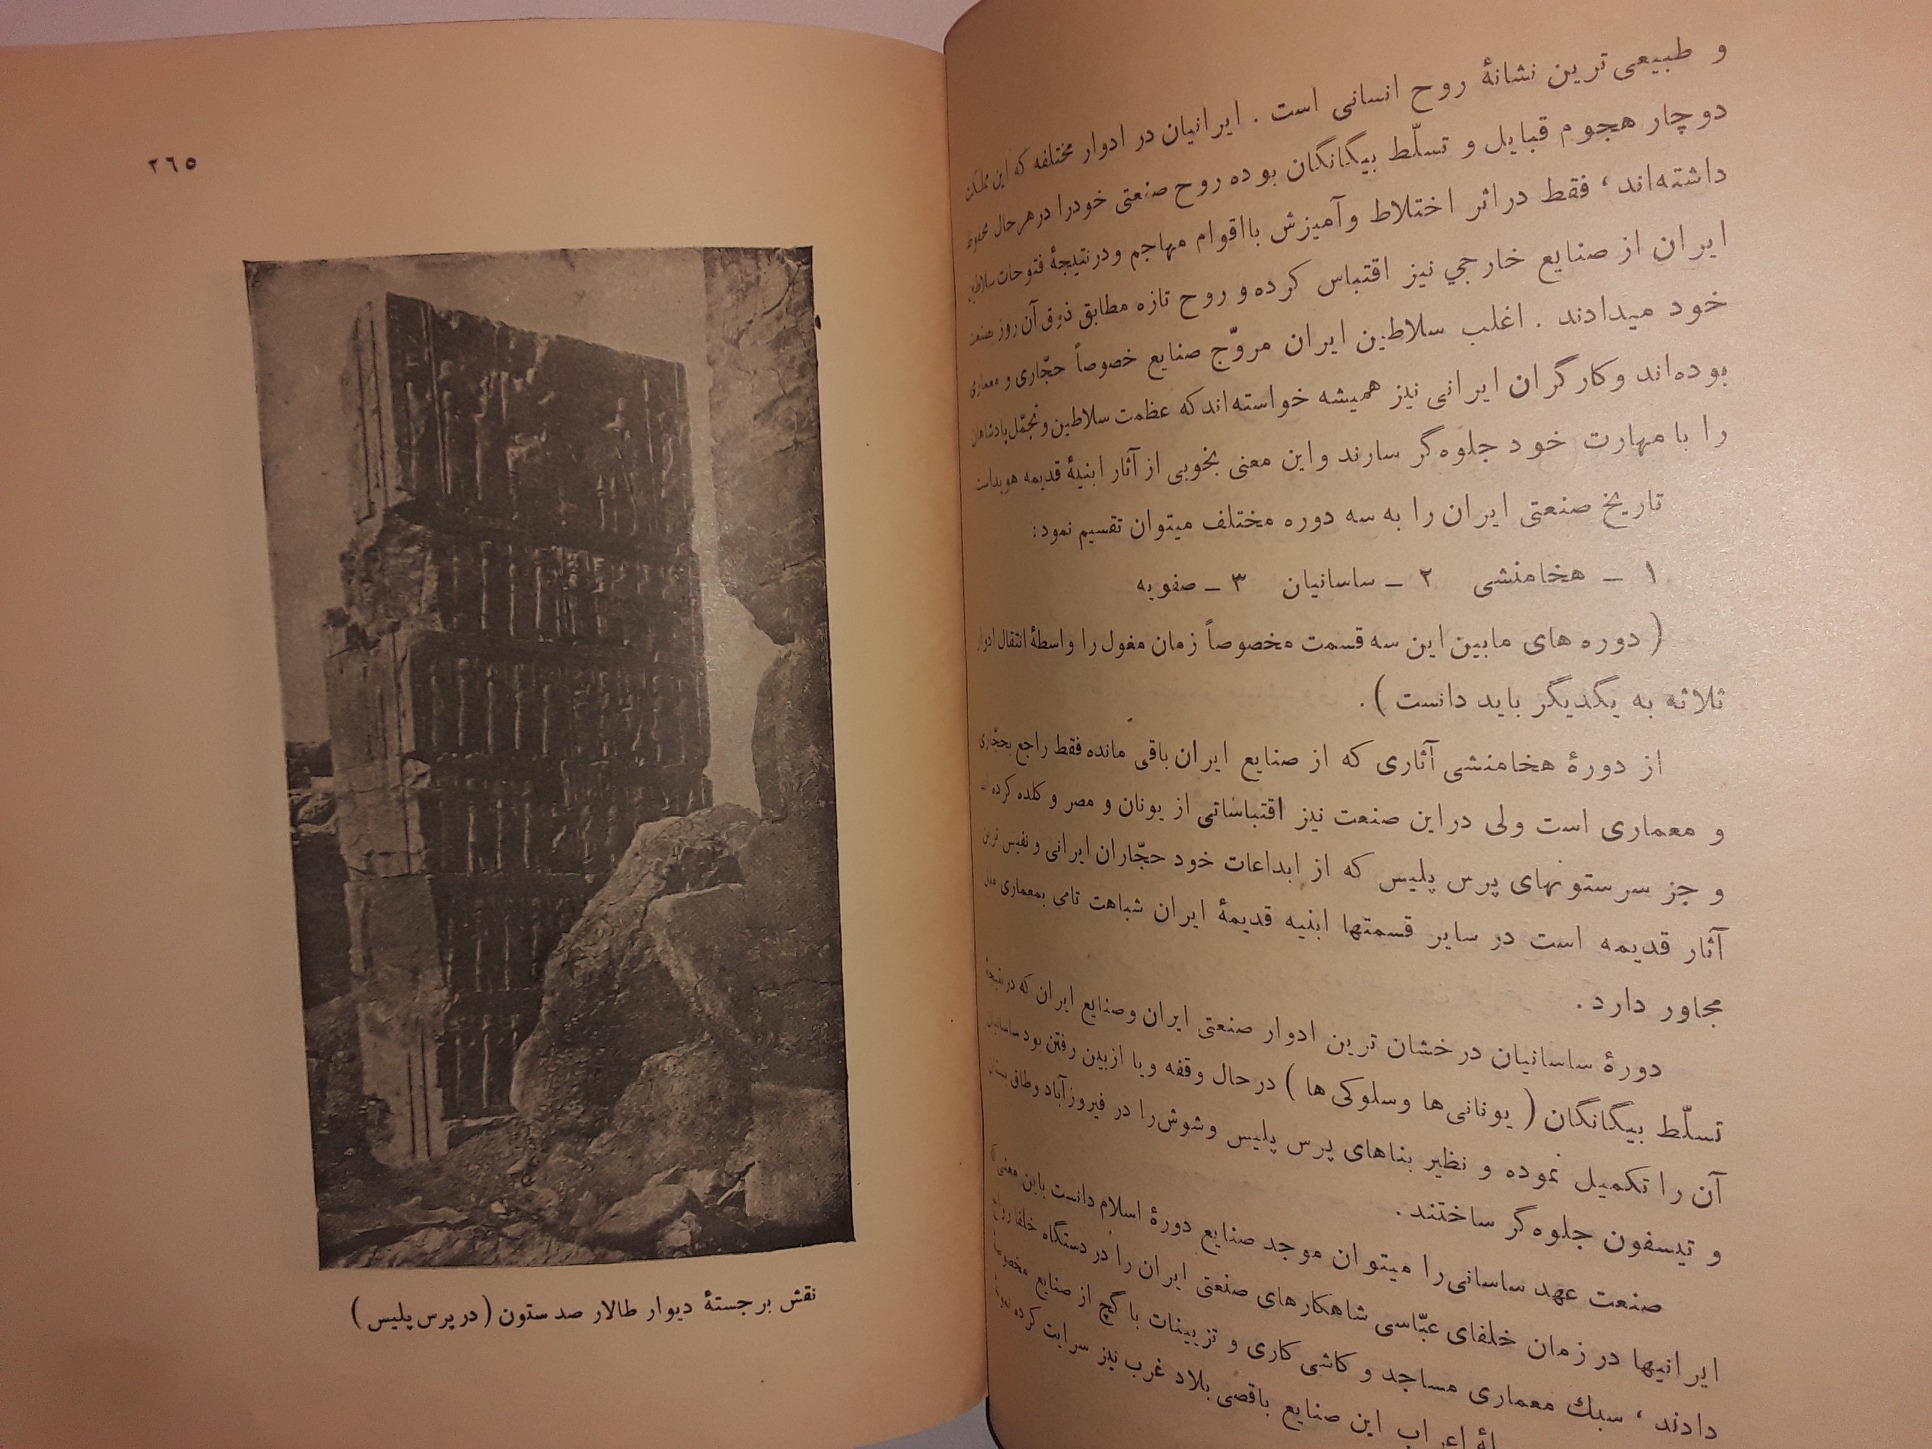 و طبیعی‌ترین نشانهٔ روح انسانی است . ایرانیان در ادوار مختلفه که این مملکت
دوچار هجوم قبایل و تسلّط بیگانگان بوده روح صنعتی خودرا درهرحال محفوظ
داشته‌اند ، فقط دراثر اختلاط وآمیزش بااقوام مهاجم ودرنتیجهٔ فتوحات سلاطین
ایران از صنایع خارجي نیز اقتباس کرده و روح تازه مطابق ذوق آن روز بصنعت
خود میدادند . اغلب سلاطین ایران مروّج صنایع خصوصاً حجّاری و معماری
بوده‌اند وکارگران ایرانی نیز همیشه خواسته‌اندکه عظمت سلاطین و تجمّل پادشاهان
را با مهارت خود جلوه‌گر سارند واین معنی بخوبی از آثار ابنیهٔ قدیمه هویداست
تاریخ صنعتی ایران را به سه دوره مختلف میتوان تقسیم نمود:
۱ ـ هخامنشی ۲ ـ ساسانیان ۳ ـ صفویه
( دوره های مابین این سه قسمت مخصوصاً زمان مغول را واسطهٔ انتقال ادوار
ثلاثه به یگدیگر باید دانست ) .
از دورهٔ هخامنشی آثاری که از صنایع ایران باقی مانده فقط راجع بحجّاری
و معماری است ولی دراین صنعت نیز اقتباساتی از یونان و مصر و کلده کرده
و جز سرستونهای پرس پلیس که از ابداعات خود حجّاران ایرانی و نفیس ترین
آثار قدیمه است در سایر قسمتها ابنیه قدیمهٔ ایران شباهت تامی بمعماری
مجاور دارد .
دورهٔ ساسانیان درخشان ترین ادوار صنعتی ایران وصنایع ایران که درنتیجهٔ
تسلّط بیگانگان ( یونانی‌ها وسلوکی‌ها ) درحال وقفه ویا ازبین رفتن بود ساسانیان
آن را تکمیل نموده و نظیر بناهای پرس پلیس وشوش‌را در فیروزآباد وطاق بستان
و تیسفون جلوه‌گر ساختند .
صنعت عهد ساسانی‌را میتوان موجد صنایع دورهٔ اسلام دانست باین معنی
ایرانیها در زمان خلفای عبّاسی شاهکارهای صنعتی ایران را در دستگاه خلفا رواج
دادند ، سبك معماری مساجد و کاشی‌کاری و تزیینات با گچ از صنایع مخصوص
اعراب این صنایع باقصی بلاد غرب نیز سرایت کرده
۲٦۵
نقش برجستهٔ دیوار طالار صد ستون ( در پرس پلیس )